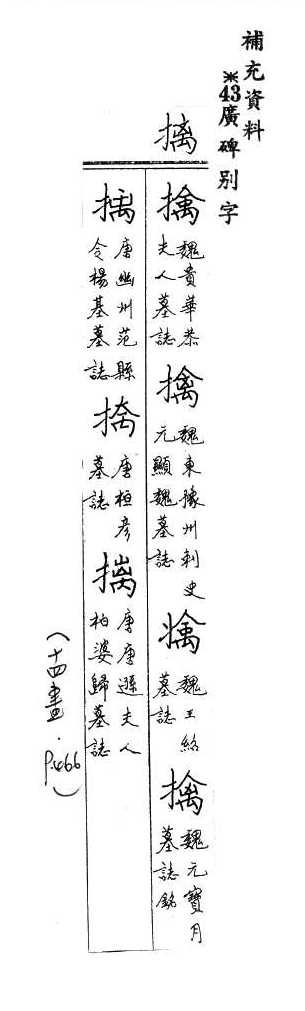 補充資料
※43廣碑別字
摛
擒 魏貴華恭夫人墓誌
擒 魏東豫州刺史元顯魏墓誌
魏王紹墓誌
魏元寶月墓誌銘
唐幽州范縣令楊基墓誌
唐桓彥墓誌
唐唐遜夫人柏婆歸墓誌
(十四畫．P.466)